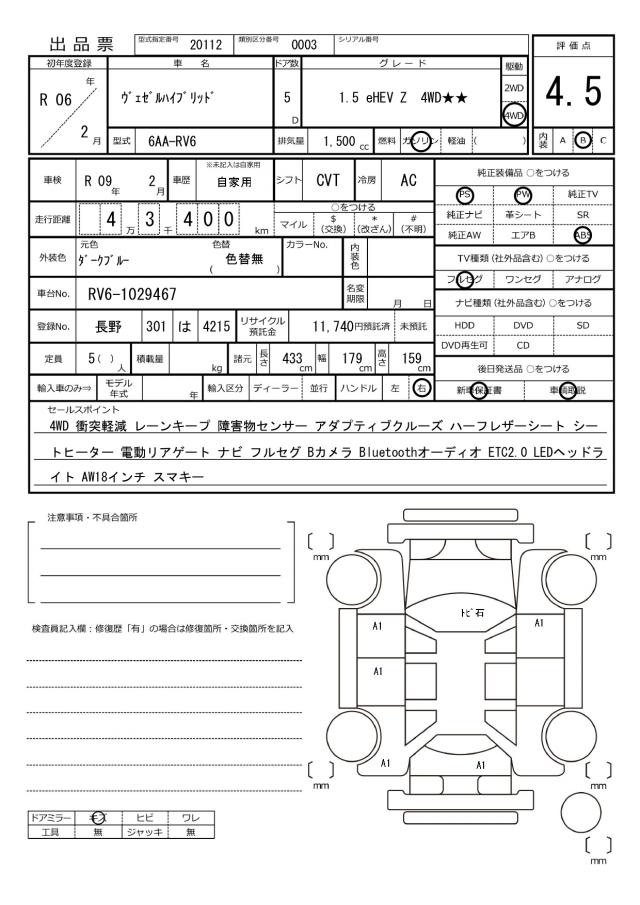 出品票 型式指定番号 20112 類別区分番号 0003 シリアル番号
評価点
4.5
内装 A B C
初年度登録 車名 ドア数 グレード 駆動
R 06 年 2 月
ヴェゼルハイブリッド 5 D 1.5 eHEV Z 4WD★★ 2WD
4WD
型式 6AA-RV6 排気量 1,500 cc 燃料 ガソリン 軽油 ( )
車検 R 09 年 2 月 車歴 ※未記入は自家用
自家用 シフト CVT 冷房 AC
走行距離 4 万 3 千 4 0 0 km
○をつける
マイル $(交換) *(改ざん) #(不明)
外装色 元色 ダークブルー 色替 色替無 ( ) カラーNo. 内装色
車台No. RV6-1029467 名変期限 月 日
登録No. 長野 301 は 4215 リサイクル預託金 11,740円預託済 未預託
定員 5 ( ) 人 積載量 kg 諸元 長さ 433 cm 幅 179 cm 高さ 159 cm
輸入車のみ⇒ モデル年式 年 輸入区分 ディーラー 並行 ハンドル 左 右
純正装備品 ○をつける
PS PW 純正TV
純正ナビ 革シート SR
純正AW エアB ABS
TV種類(社外品含む)○をつける
フルセグ ワンセグ アナログ
ナビ種類(社外品含む)○をつける
HDD DVD SD
DVD再生可 CD
後日発送品 ○をつける
新車保証書 車輌取説
セールスポイント
4WD 衝突軽減 レーンキープ 障害物センサー アダプティブクルーズ ハーフレザーシート シー
トヒーター 電動リアゲート ナビ フルセグ Bカメラ Bluetoothオーディオ ETC2.0 LEDヘッドラ
イト AW18インチ スマキー
注意事項・不具合箇所
検査員記入欄:修復歴「有」の場合は修復箇所・交換箇所を記入
〔 〕
mm
〔 〕
mm
トビ石
A1
A1
A1
A1
A1
〔 〕
mm
〔 〕
mm
〔 〕
mm
ドアミラー キズ ヒビ ワレ
工具 無 ジャッキ 無